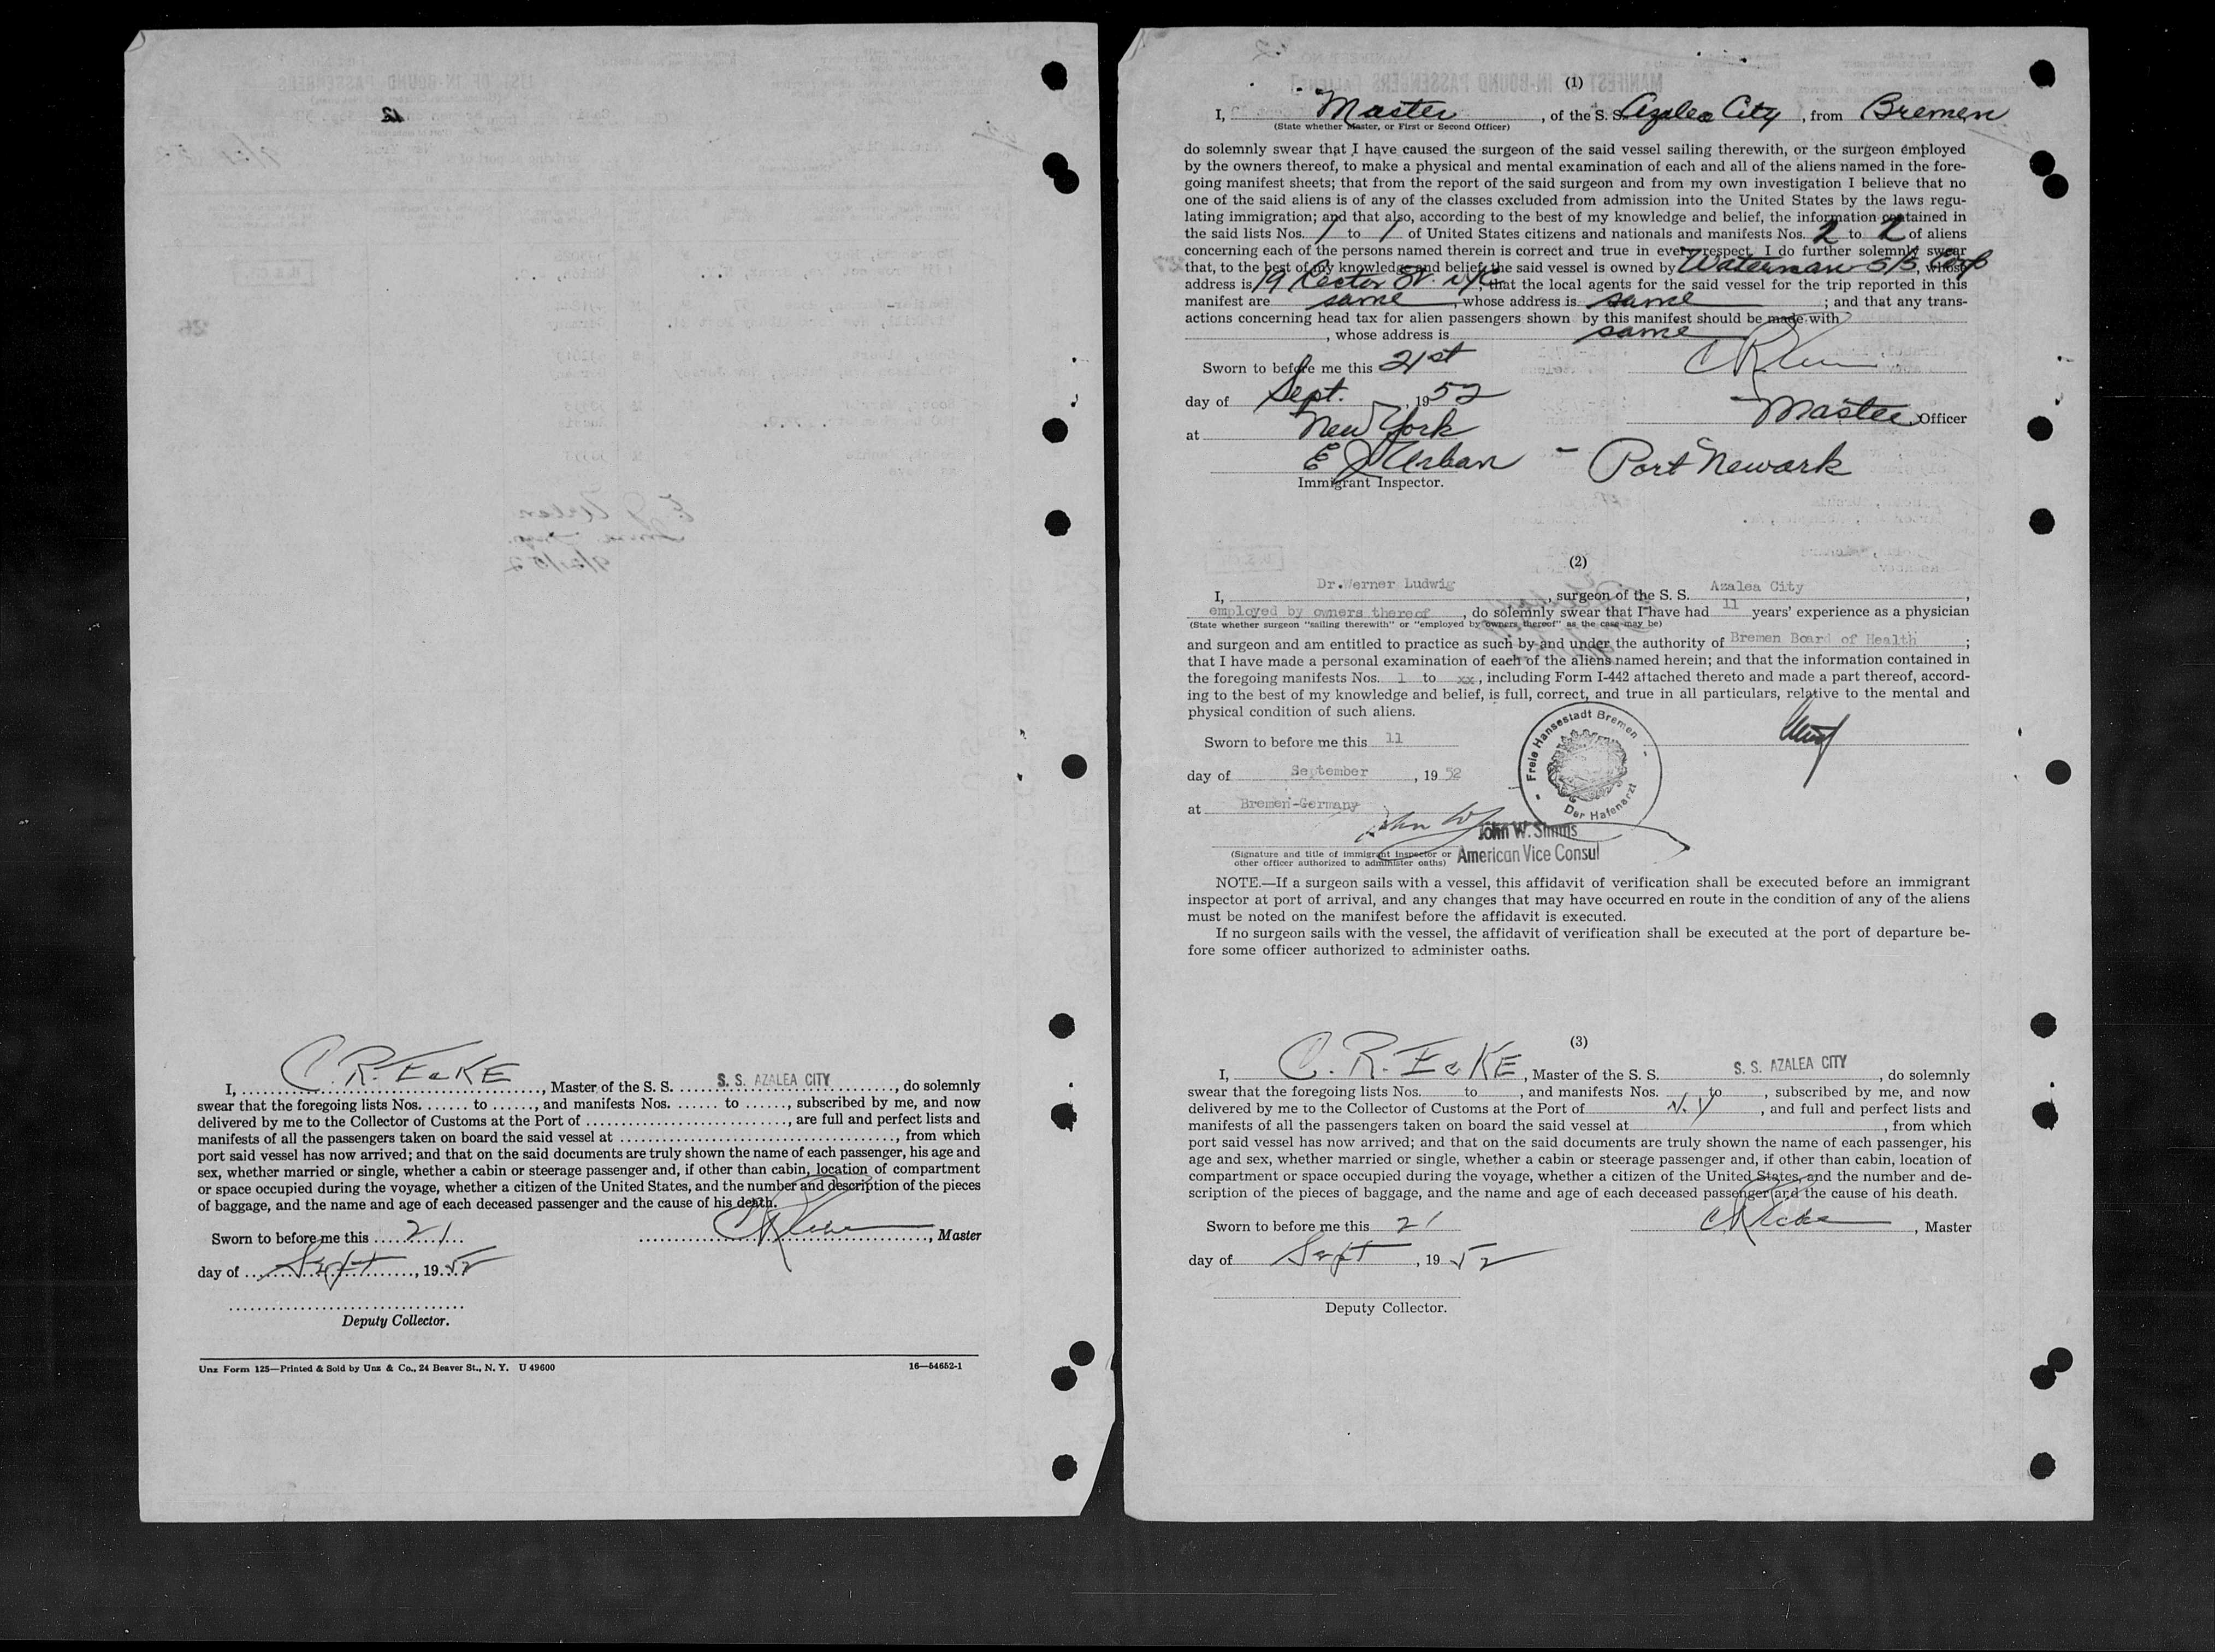 12
I, C. R. EcKE, Master of the S. S. S. S. AZALEA CITY, do solemnly
swear that the foregoing lists Nos. ....... to ......, and manifests Nos. ....... to ......, subscribed by me, and now
delivered by me to the Collector of Customs at the Port of ............................, are full and perfect lists and
manifests of all the passengers taken on board the said vessel at ......................................, from which
port said vessel has now arrived; and that on the said documents are truly shown the name of each passenger, his age and
sex, whether married or single, whether a cabin or steerage passenger and, if other than cabin, location of compartment
or space occupied during the voyage, whether a citizen of the United States, and the number and description of the pieces
of baggage, and the name and age of each deceased passenger and the cause of his death.
Sworn to before me this 21
CR Ecke, Master
day of Sept, 1952
Deputy Collector.
Unz Form 125—Printed & Sold by Unz & Co., 24 Beaver St., N. Y. U 49600 16—54652-1
(1)
I, Master, of the S. S. Azalea City, from Bremen
(State whether Master, or First or Second Officer)
do solemnly swear that I have caused the surgeon of the said vessel sailing therewith, or the surgeon employed
by the owners thereof, to make a physical and mental examination of each and all of the aliens named in the fore-
going manifest sheets; that from the report of the said surgeon and from my own investigation I believe that no
one of the said aliens is of any of the classes excluded from admission into the United States by the laws regu-
lating immigration; and that also, according to the best of my knowledge and belief, the information contained in
the said lists Nos. 1 to 1 of United States citizens and nationals and manifests Nos. 2 to 2 of aliens
concerning each of the persons named therein is correct and true in every respect. I do further solemnly swear
that, to the best of my knowledge and belief, the said vessel is owned by Waterman S/S Corp, whose
address is 19 Rector St. NYC, that the local agents for the said vessel for the trip reported in this
manifest are same, whose address is same; and that any trans-
actions concerning head tax for alien passengers shown by this manifest should be made with
, whose address is same
Sworn to before me this 21st
CR Ecke
day of Sept., 1952
Master Officer
at New York
E J Urban - Port Newark
Immigrant Inspector.
(2)
I, Dr.Werner Ludwig, surgeon of the S. S. Azalea City,
employed by owners thereof, do solemnly swear that I have had 11 years' experience as a physician
(State whether surgeon "sailing therewith" or "employed by owners thereof" as the case may be)
and surgeon and am entitled to practice as such by and under the authority of Bremen Board of Health;
that I have made a personal examination of each of the aliens named herein; and that the information contained in
the foregoing manifests Nos. 1 to xx, including Form I-442 attached thereto and made a part thereof, accord-
ing to the best of my knowledge and belief, is full, correct, and true in all particulars, relative to the mental and
physical condition of such aliens.
Freie Hansestadt Bremen
Der Hafenarzt
Sworn to before me this 11
day of September, 1952
at Bremen-Germany
John W. Simms
American Vice Consul
(Signature and title of immigrant inspector or
other officer authorized to administer oaths)
NOTE.—If a surgeon sails with a vessel, this affidavit of verification shall be executed before an immigrant
inspector at port of arrival, and any changes that may have occurred en route in the condition of any of the aliens
must be noted on the manifest before the affidavit is executed.
If no surgeon sails with the vessel, the affidavit of verification shall be executed at the port of departure be-
fore some officer authorized to administer oaths.
(3)
I, C. R. EcKE, Master of the S. S. S. S. AZALEA CITY, do solemnly
swear that the foregoing lists Nos. to , and manifests Nos. to , subscribed by me, and now
delivered by me to the Collector of Customs at the Port of N. Y, and full and perfect lists and
manifests of all the passengers taken on board the said vessel at , from which
port said vessel has now arrived; and that on the said documents are truly shown the name of each passenger, his
age and sex, whether married or single, whether a cabin or steerage passenger and, if other than cabin, location of
compartment or space occupied during the voyage, whether a citizen of the United States, and the number and de-
scription of the pieces of baggage, and the name and age of each deceased passenger and the cause of his death.
Sworn to before me this 21
CR Ecke, Master
day of Sept, 1952
Deputy Collector.